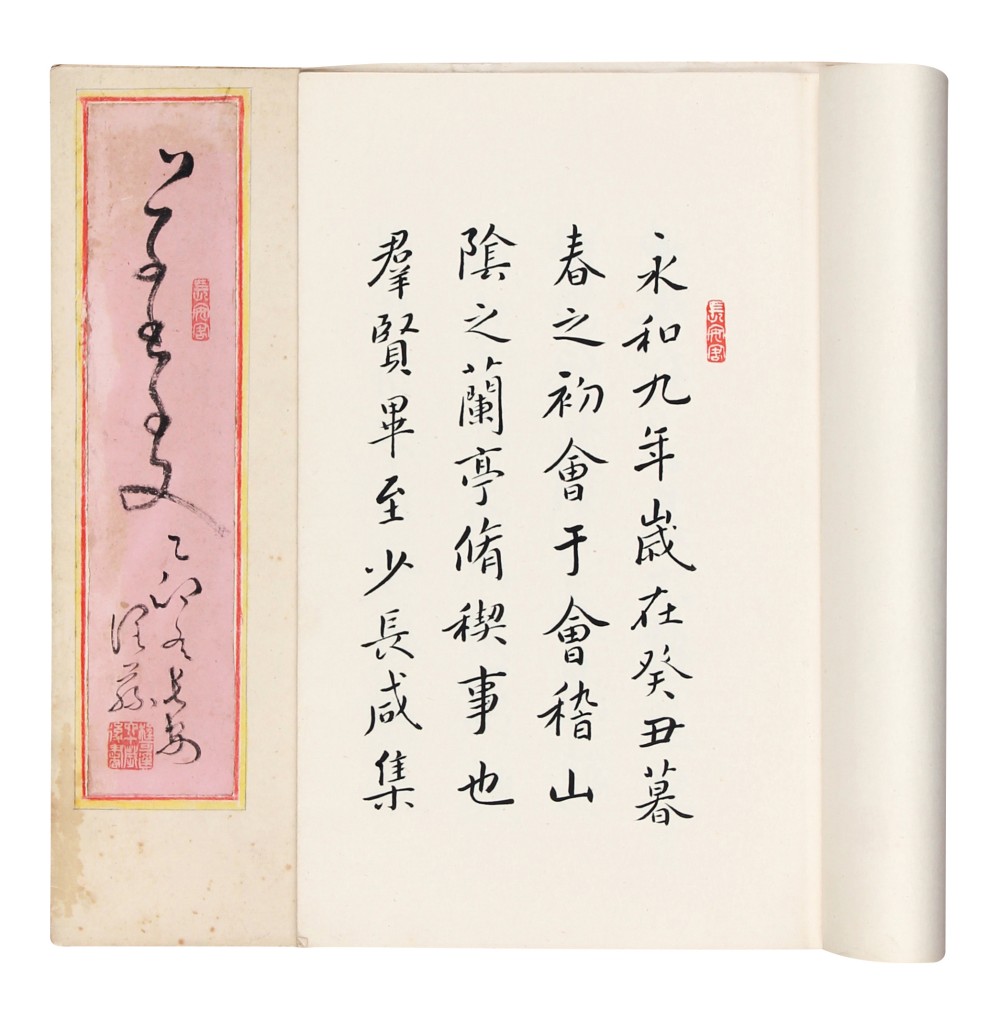 永和九年歲在癸丑暮
春之初會于會稽山
陰之蘭亭脩稧事也
羣賢畢至少長咸集
乙卯冬長安